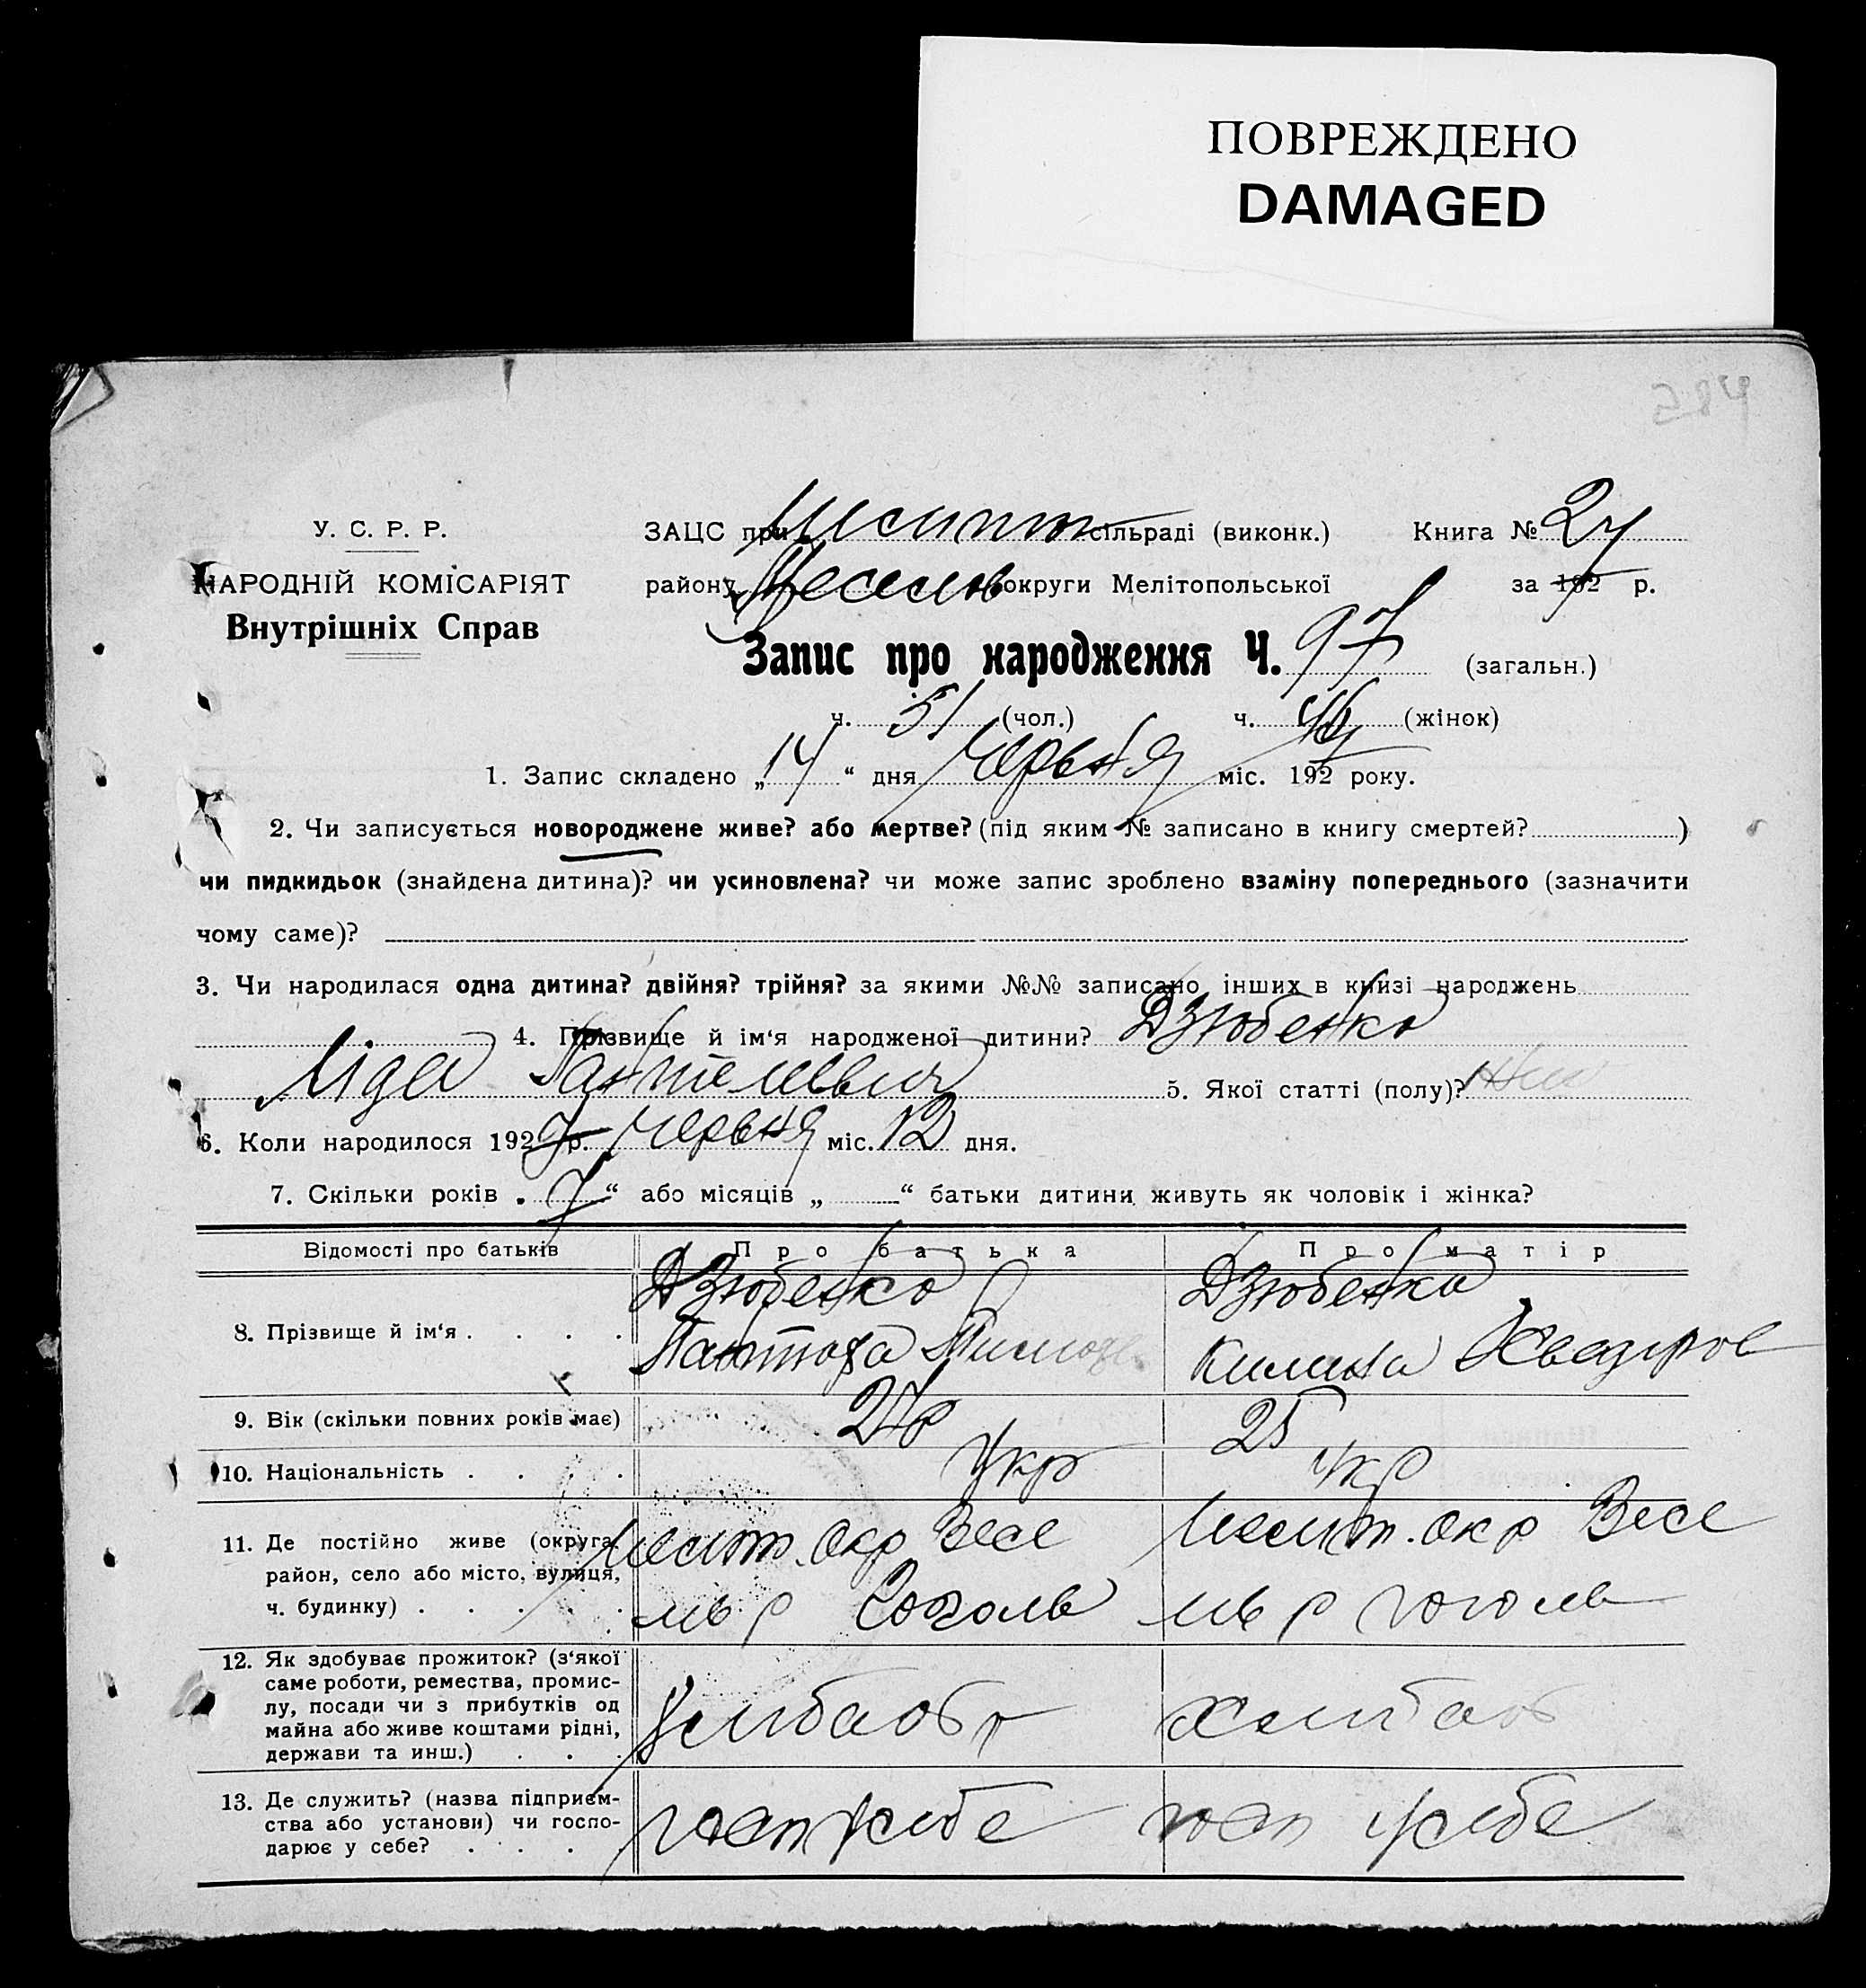 ПОВРЕЖДЕНО
DAMAGED
584
У. С. Р. Р.
НАРОДНІЙ КОМІСАРІЯТ
Внутрішніх Справ
ЗАЦС при сільраді (виконк.) Книга №
району округи Мелітопольської за 192 р.
Запис про народження Ч. 97 (загальн.)
ч. 51 (чол.) ч. 46 (жінок)
1. Запис складено „14“ дня Червня міс. 192 року.
2. Чи записується новороджене живе? або мертве? (під яким № записано в книгу смертей? )
чи пидкидьок (знайдена дитина)? чи усиновлена? чи може запис зроблено взаміну попереднього (зазначити
чому саме)?
3. Чи народилася одна дитина? двійня? трійня? за якими №№ записано інших в книзі народжень
4. Прізвище й ім‘я народженої дитини? Дзюбенко
Ліда 5. Якої статті (полу)?
6. Коли народилося 1927 р. Червня міс. 12 дня.
7. Скільки років „7“ або місяців „ “ батьки дитини живуть як чоловік і жінка?
Відомості про батьків Про батька Про матір
8. Прізвище й ім‘я . . . . Дзюбенко Дзюбенко
Килина
9. Вік (скільки повних років має) 25
10. Національність . . . . Укр Укр
11. Де постійно живе (округа, район, село або місто, вулиця, ч. будинку) . . . . Мелит. окр Весе Мелит. окр Весе
ль р Гоголь ль р Гоголь
12. Як здобуває прожиток? (з‘якої
саме роботи, ремества, промис-
лу, посади чи з прибутків од
майна або живе коштами рідні,
держави та инш.) . . .
13. Де служить? (назва підприєм-
ства або установи) чи госпо-
дарює у себе? . . . . госп у себе госп у себе